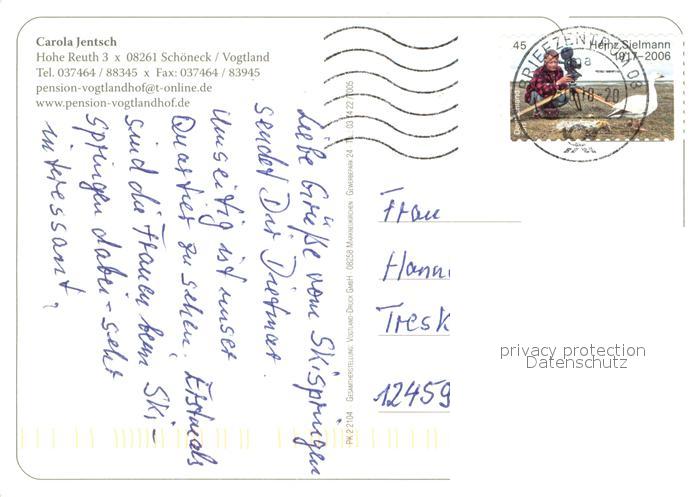 Carola Jentsch
Hohe Reuth 3 x 08261 Schöneck / Vogtland
Tel. 037464 / 88345 x Fax: 037464 / 83945
pension-vogtlandhof@t-online.de
www.pension-vogtlandhof.de
Liebe Grüße vom Skispringen
sendet Dir Dietmar.
Umseitig ist unser
Quartier zu sehen. Erstmals
sind die Frauen beim Ski-
springen dabei - sehr
interessant.
PK 2 2104 GESAMTHERSTELLUNG: VOGTLAND-DRUCK GMBH · 08258 MARKNEUKIRCHEN · GEWERBEPARK 24
45
Heinz Sielmann
1917–2006
BRIEFZENTRUM 08
Frau
Hann
Tresk
12459
privacy protection
Datenschutz